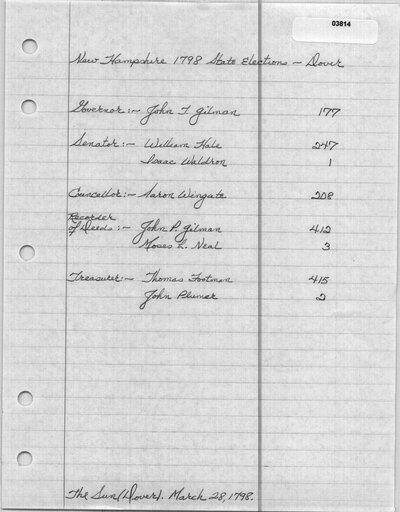 03814
New Hampshire 1798 State Elections - Dover
Governor:- John T. Gilman 177
Senator:- William Hale 247
Isaac Waldron 1
Councellor:- Aaron Wingate 208
Recorder
of Deeds:- John P. Gilman 412
Moses L. Neal 3
Treasurer:- Thomas Footman 415
John Plumer 2
The Sun (Dover). March 28, 1798.